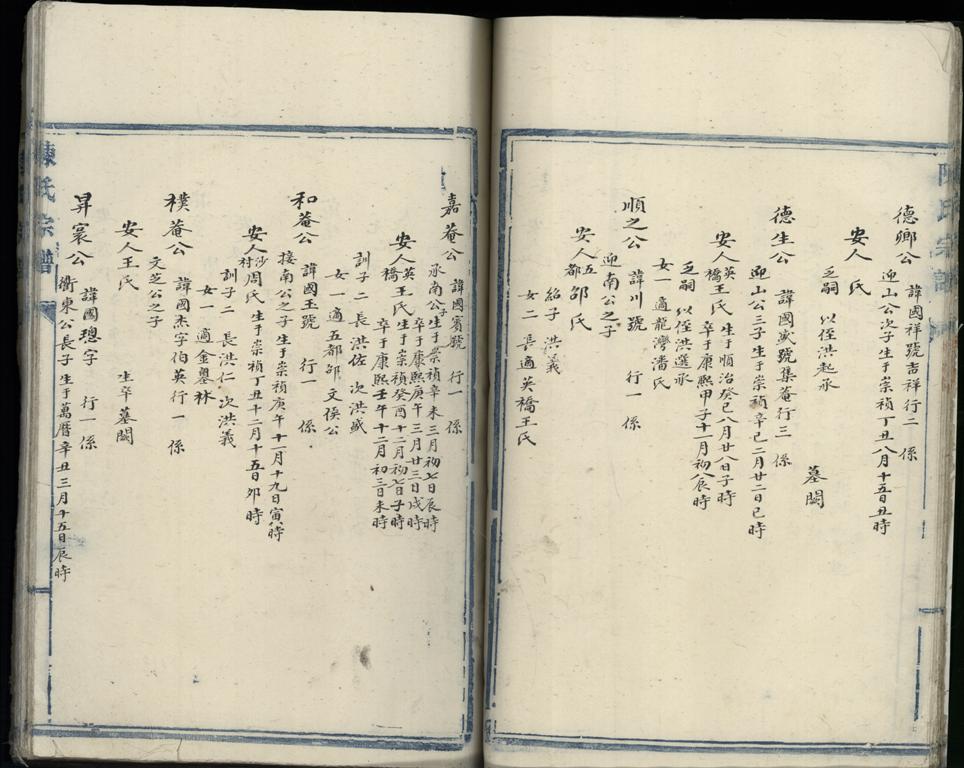 陳氏宗譜
德卿公
諱國祥號吉祥行二 係
迎山公次子生于崇禎丁丑八月十五日丑時
安人 氏
乏嗣 以侄洪起承
墓闕
德生公
諱國斌號集菴行三 係
迎山公三子生于崇禎辛巳二月廿二日巳時
安人英橋王氏
生于順治癸巳八月廿八日子時
卒于康熙甲子十一月初八辰時
乏嗣 以侄洪選承
女一適龍灣潘氏
順之公
諱川號 行一 係
迎南公之子
安人五都邵氏
紹子 洪義
女二 長適英橋王氏
嘉菴公
諱國賓號 行一 係
承南公子
生于崇禎辛未三月初七日辰時
卒于康熙庚午三月廿三日戌時
安人英橋王氏
生于崇禎癸酉十二月初七日子時
卒于康熙壬午十二月初三日未時
訓子二 長洪佐 次洪斌
女一適五都邵文俁公
和菴公
諱國玉號 行一 係
接南公之子 生于崇禎庚午十一月十九日寅時
安人沙村周氏 生于崇禎丁丑十二月十五日卯時
訓子二 長洪仁 次洪義
女一 適金墨林
襆菴公
諱國杰字伯英行一 係
文芝公之子
安人王氏
生卒墓闕
昇寰公
諱國璁字 行一係
衝東公長子 生于萬曆辛丑三月十五日辰時
陳氏宗譜